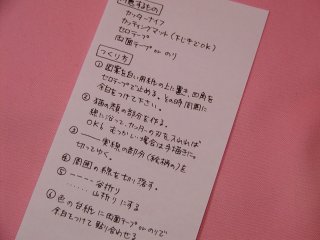 用意するもの
カッターナイフ
カッティングマット(下じきでOK)
セロテープ
両面テープor のり
つくり方
① 図案を白い用紙の上に置き、四角を
セロテープで止める。その時周囲に
余白をつけて下さい。
② 猫の顔の部分を作る。
線に沿って、カッターの刃を入れれば
OK! むずかしい場合は手描きに
③ ―― 実線の部分(絵柄の)を
切ってゆく。
④ 周囲の線を切り落す。
⑤ ---- 谷折り
...... 山折りにする
⑥ 色の台紙に両面テープorのりで
余白をつけて貼り合わせる